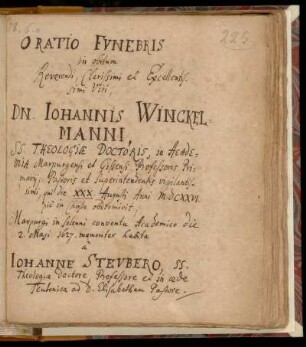 225
ORATIO FVNEBRIS
in obitum
Reverendi, Clarissimi et Excellentis-
simi Viri,
DN. IOHANNIS WINCKEL-
MANNI,
SS. THEOLOGIÆ DOCTORIS, in Acade-
miâ Marpurgensi et Professoris Pri-
marij, Pastoris et Superintendentis vigilantis-
simi, qui die XXX Augusti Anni MDCXXVI.
obdormivit,
Marpurgi in solenni conventu Academico die
2. Maji 1627. memoriter habita
à
IOHANNE STEVBERO, SS.
Theologiæ Doctore Professore et in æde
Teutonica ad D. Elisabetham Pastore.